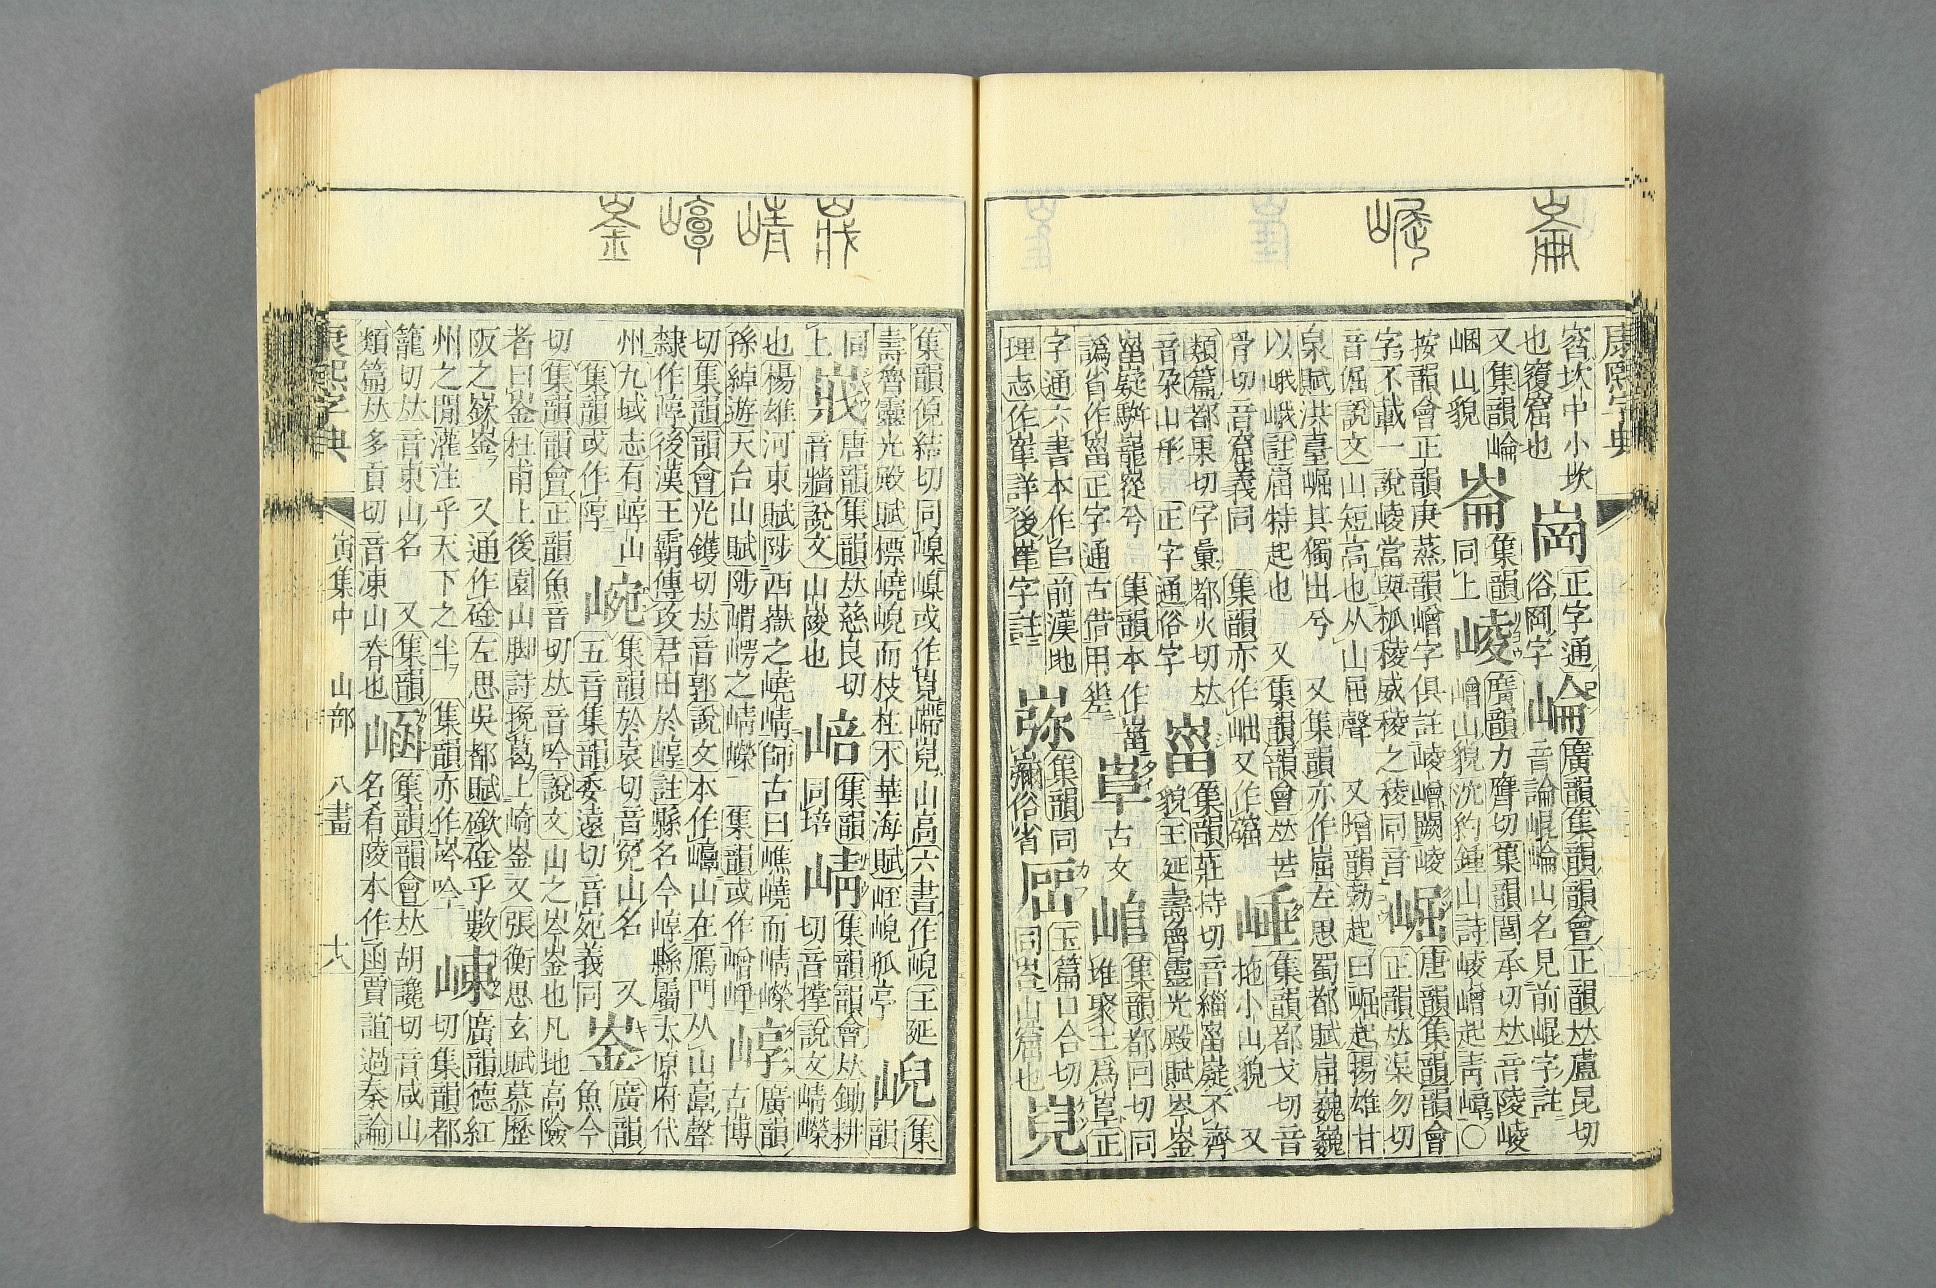 崙
崛
康熙字典
窞坎中小坎也覆窟也 崗 正字通俗岡字 崘 廣韻集韻韻會正韻𠀤盧昆切音論崐崘山名見前崐字註
又集韻崘 山貌 崙 集韻同上 崚 廣韻力膺切集韻閭承切𠀤音陵崚嶒山貌沈約鍾山詩崚嶒起靑嶂〇
按韻會正韻庚蒸韻嶒字俱註崚嶒闕崚字不載一說崚當與柧稜威稜之稜同音 崛 唐韻集韻韻會正韻𠀤渠勿切
音倔說文山短高也从山屈聲 又增韻勃起曰崛起揚雄甘泉賦洪臺崛其獨出兮 又集韻亦作屈左思蜀都賦屈巍巍
以峨峨註屈特起也 又集韻韻會𠀤苦骨切音窟義同 集韻亦作崫又作 崜 集韻都戈切音拖小山貌 又
類篇都果切字彙都火切𠀤音朶山形 正字通俗字 崰 集韻莊持切音緇崰嶷不齊貌王延壽魯靈光殿賦岑崟
崰嶷駢巃嵸兮 集韻本作 譌省作崰正字通古借用甾 古文 集韻都回切同堆聚土爲 正
字通六書本作𠂤前漢地理志作崋詳後崋字註 集韻同 俗省 玉篇口合切同 山窟也
崝 崞 崟
集韻倪結切同嵲嵲或作 山高六書作 王延壽魯靈光殿賦 嶢 而枝拄木華海賦 孤亭 集韻
同上 唐韻集韻𠀤慈良切音牆說文山陵也 㟝 集韻同培 崝 集韻韻會𠀤鋤耕切音撑說文崝嶸
也楊雄河東賦陟西嶽之嶢崝師古曰嶕嶢而崝嶸孫綽遊天台山賦陟峭崿之崝嶸 集韻或作嶒崢 崞 廣韻古博
切集韻韻會光鑊切𠀤音郭說文本作 山在鴈門从山𩫏聲隸作崞後漢王霸傳攻君田於崞註縣名今崞縣屬太原府代
州九域志有崞山 集韻或作 集韻於袁切音冤山名 又五音集韻委遠切音宛義同 崟 廣韻魚今
切集韻韻會正韻魚音切𠀤音吟說文山之岑崟也凡地高險者曰崟杜甫上後園山脚詩挽葛上崎崟又張衡思玄賦慕歷
阪之嶔崟 又通作碒左思吳都賦 乎數州之閒灌注乎天下之半 集韻亦作 吟 崠 廣韻德紅切集韻都
籠切𠀤音東山名 又集韻類篇𠀤多貢切音凍山脊也 崡 集韻韻會𠀤胡讒切音咸山名肴陵本作函賈誼過秦論
康熙字典 寅集中 山部 八畫 十八